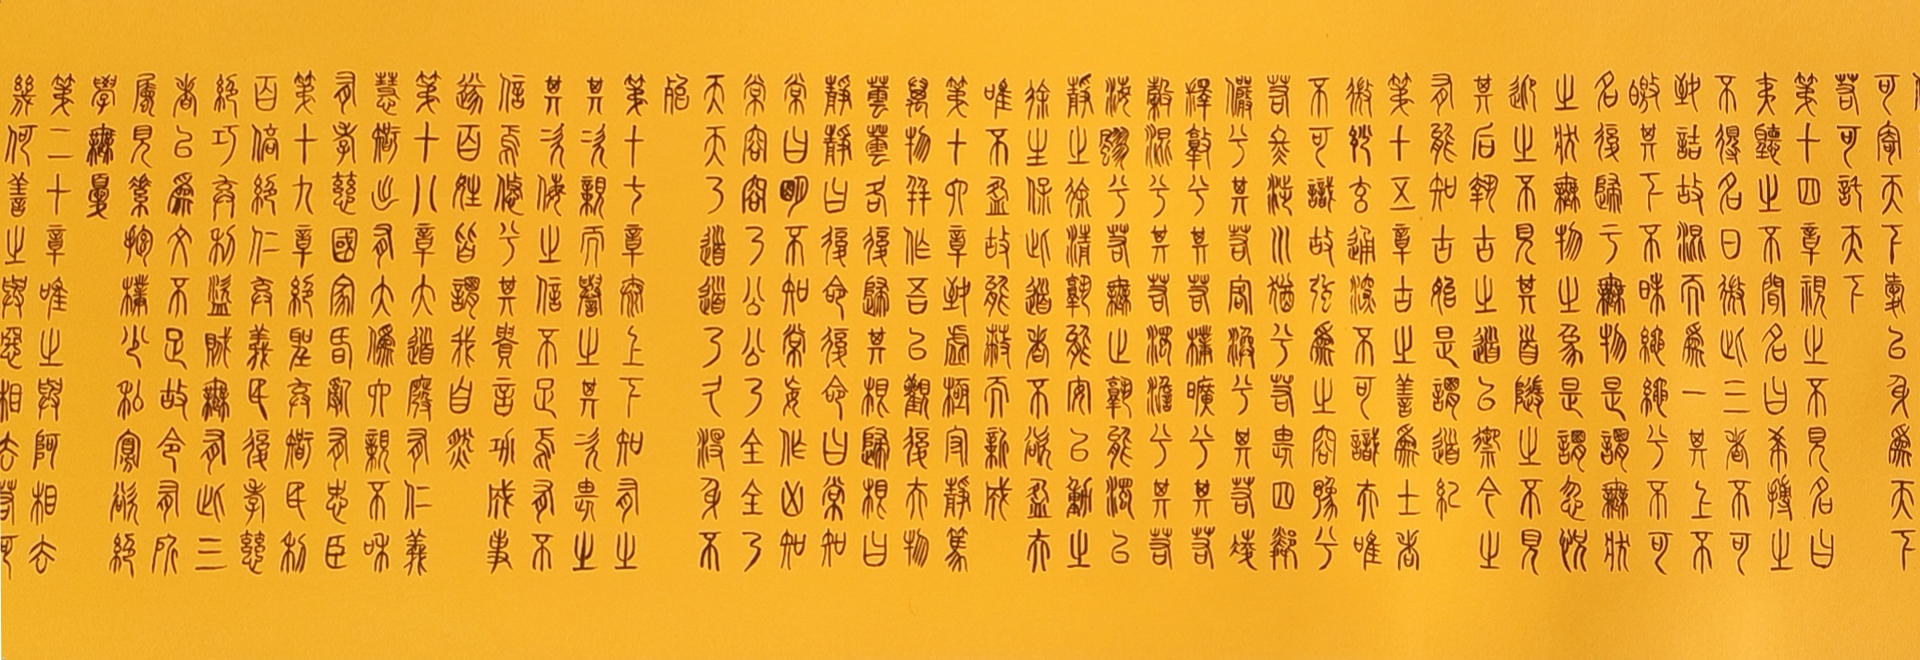 可寄天下愛以身為天下
若可託天下
第十四章視之不見名曰
夷聽之不聞名曰希摶之
不得名曰微此三者不可
致詰故混而為一其上不
皦其下不昧繩繩兮不可
名復歸于無物是謂無狀
之狀無物之象是謂忽恍
迎之不見其首隨之不見
其后執古之道以禦今之
有能知古始是謂道紀
第十五章古之善為士者
微妙玄通深不可識夫唯
不可識故強為之容豫兮
若冬涉川猶兮若畏四鄰
儼兮其若客渙兮其若凌
釋敦兮其若樸曠兮其若
穀混兮其若濁澹兮其若
海飂兮若無止孰能濁以
靜之徐清孰能安以動之
徐生保此道者不欲盈夫
唯不盈故能蔽而新成
第十六章致虛極守靜篤
萬物並作吾以觀復夫物
芸芸各復歸其根歸根曰
靜靜曰復命復命曰常知
常曰明不知常妄作凶知
常容容乃公公乃全全乃
天天乃道道乃久沒身不
殆
第十七章太上下知有之
其次親而譽之其次畏之
其次侮之信不足焉有不
信焉悠兮其貴言功成事
遂百姓皆謂我自然
第十八章大道廢有仁義
慧智出有大偽六親不和
有孝慈國家昏亂有忠臣
第十九章絕聖棄智民利
百倍絕仁棄義民復孝慈
絕巧棄利盜賊無有此三
者以為文不足故令有所
屬見素抱樸少私寡欲絕
學無憂
第二十章唯之與阿相去
幾何善之與惡相去若可